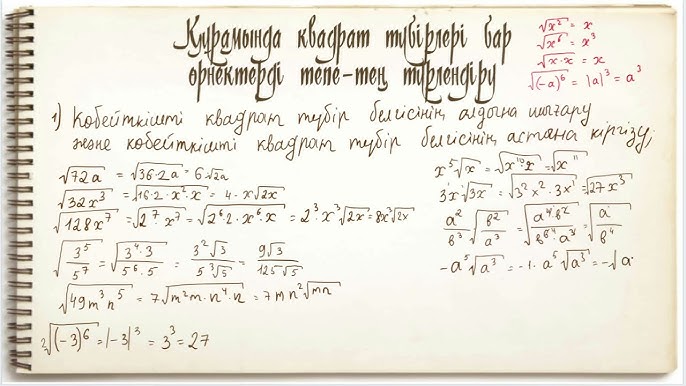 Құрамында квадрат түбірлері бар
өрнектерді тепе-тең түрлендіру
√x² = x
√x⁶ = x³
√x·x = x
√(-a)⁶ = |a|³ = a³
1) Көбейткішті квадрат түбір белгісінің алдына шығару
және көбейткішті квадрат түбір белгісінің астына кіргізу;
√72a = √36·2a = 6√2a
√32x³ = √16·2·x²·x = 4·x√2x
√128x⁷ = √2⁷·x⁷ = √2⁶·2·x⁶·x = 2³·x³√2x = 8x³√2x
√3⁵/5⁷ = √3⁴·3/5⁶·5 = 3²√3/5³√5 = 9√3/125√5
√49m³n⁵ = 7√m²m·n⁴·n = 7mn²√mn
²√(-3)⁶ = |-3|³ = 3³ = 27
x⁵√x = √x¹⁰·x = √x¹¹
3x√3x = √3²x²·3x¹ = √27x³
a²/b³ √b²/a³ = √a⁴·b²/b⁶·a³ = √a/b⁴
-a⁵√a³ = -1·a⁵√a³ = -√a